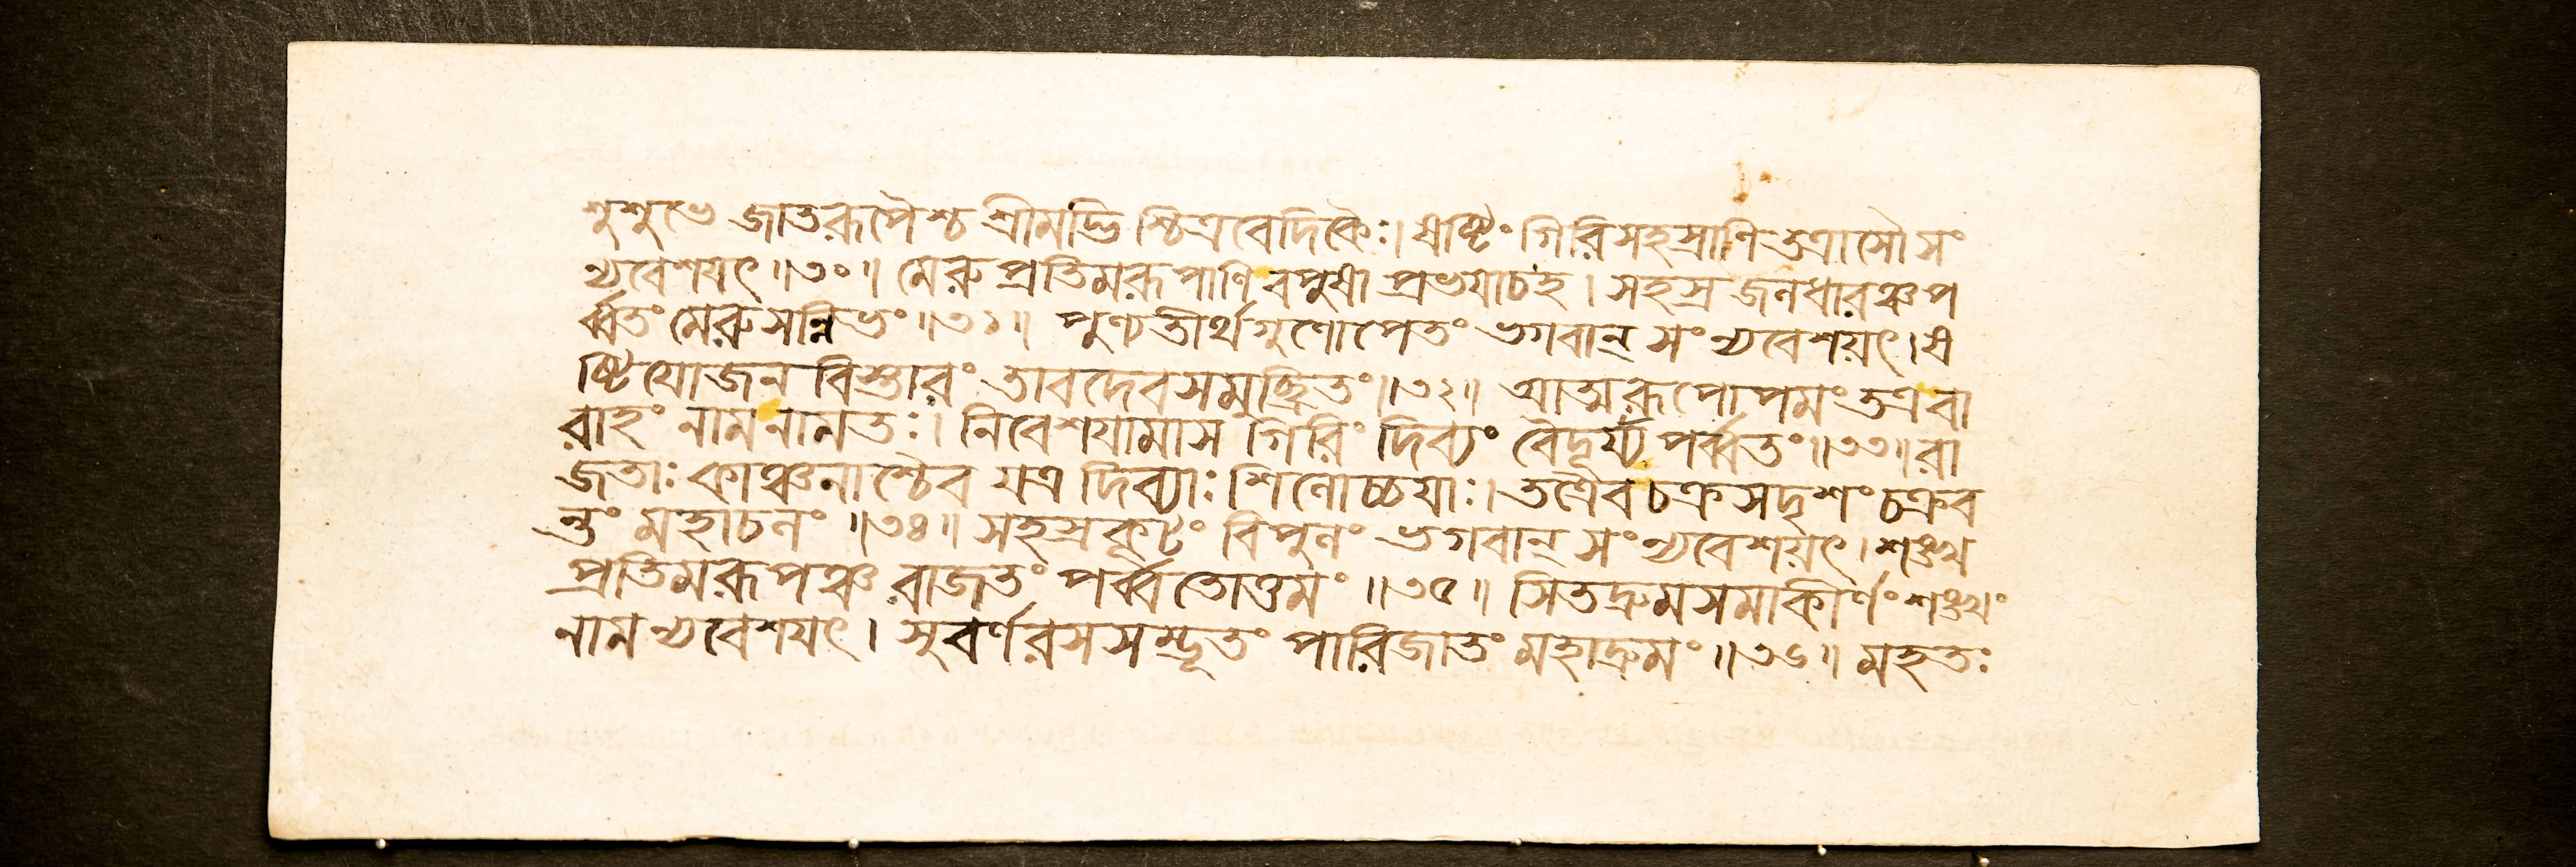 শুশুভে জাতরূপৈশ্চ শ্রীমদ্ভি শ্চিত্রবেদিকৈঃ। ষষ্টিং গিরিসহস্রাণি তত্রাসৌ সং
ন্যবেশয়ৎ॥৩০॥ মেরু প্রতিমরূপাণি বপুষা প্রভযাচহ। সহস্র জনধারঞ্চ প
র্ব্বতং মেরু সন্নিভং॥৩১॥ পুণ্যতীর্থগুণোপেতং ভগবান্ সংন্যবেশয়ৎ। ষ
ষ্টিযোজন বিস্তারং তাবদেবসমুচ্ছ্রিতং॥৩২॥ আত্মরূপোপমং তত্র বা
রাহং নামনামতঃ। নিবেশযামাস গিরিং দিব্যং বৈদূর্য্য পর্ব্বতং॥৩৩॥ রা
জতাঃ কাঞ্চনাশ্চৈব যত্র দিব্যাঃ শিলোচ্চযাঃ। তত্রৈব চক্রসদৃশং চক্রব
ন্তং মহাচলং॥৩৪॥ সহস্রকূটং বিপুলং ভগবান্ সংন্যবেশয়ৎ। শঙ্খ
প্রতিমরূপঞ্চ রাজতং পর্ব্বতোত্তমং॥৩৫॥ সিতদ্রুমসমাকীর্ণং শঙ্খং
নাম ন্যবেশযৎ। সুবর্ণরসসম্ভূতং পারিজাতং মহাদ্রুমং॥৩৬॥ মহতঃ